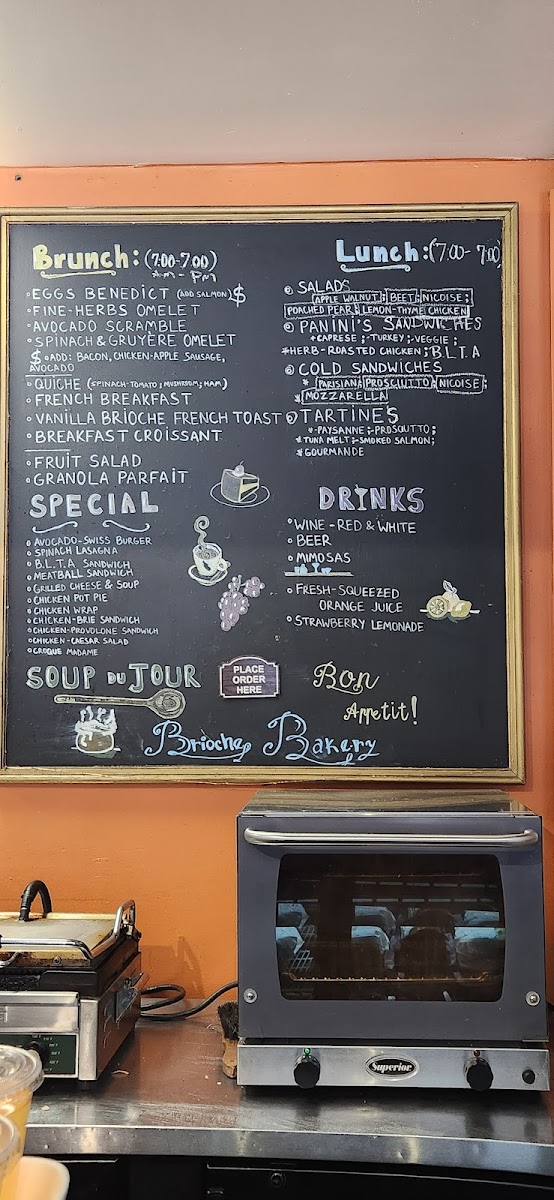 Brunch: (7:00-7:00)
AM - PM
◦EGGS BENEDICT (ADD SALMON)$
◦FINE-HERBS OMELET
◦AVOCADO SCRAMBLE
◦SPINACH & GRUYÈRE OMELET
$◦ADD: BACON, CHICKEN-APPLE SAUSAGE,
AVOCADO
◦QUICHE (SPINACH-TOMATO; MUSHROOM; HAM)
◦FRENCH BREAKFAST
◦VANILLA BRIOCHE FRENCH TOAST
◦BREAKFAST CROISSANT
◦FRUIT SALAD
◦GRANOLA PARFAIT
SPECIAL
◦AVOCADO-SWISS BURGER
◦SPINACH LASAGNA
◦B.L.T.A SANDWICH
◦MEATBALL SANDWICH
◦GRILLED CHEESE & SOUP
◦CHICKEN POT PIE
◦CHICKEN WRAP
◦CHICKEN-BRIE SANDWICH
◦CHICKEN-PROVOLONE SANDWICH
◦CHICKEN-CAESAR SALAD
◦CROQUE MADAME
SOUP DU JOUR
Lunch: (7:00- 7:00)
◦SALADS
APPLE WALNUT; BEET; NICOISE;
POACHED PEAR; LEMON-THYME CHICKEN
◦PANINI'S SANDWICHES
*CAPRESE;-TURKEY;-VEGGIE;
*HERB-ROASTED CHICKEN; B.L.T.A
◦COLD SANDWICHES
* PARISIAN; PROSCIUTTO; NICOISE;
*MOZZARELLA
◦TARTINES
*-PAYSANNE;-PROSOUTTO;
*TUNA MELT;-SMOKED SALMON;
*GOURMANDE
DRINKS
◦WINE-RED & WHITE
◦BEER
◦MIMOSAS
◦FRESH-SQUEEZED
ORANGE JUICE
◦STRAWBERRY LEMONADE
PLACE
ORDER
HERE
Bon
Appetit!
Brioche Bakery
Superior